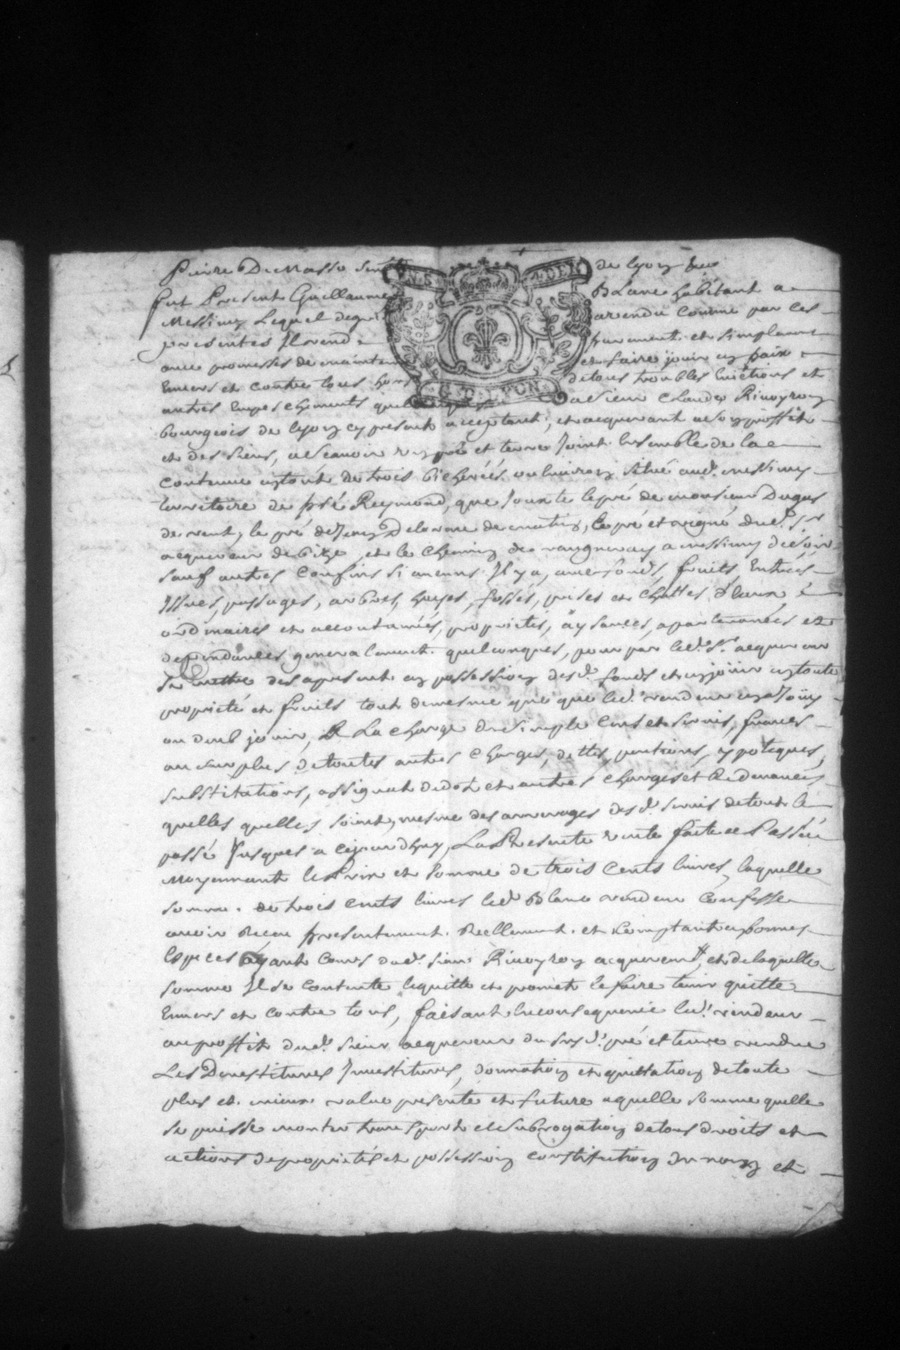 Pierre Dumasso de lyon
fut Present Guillaume Blanc habitant a
Messimy Lequel de gré a vendu comme par ces
presentes Il vend purement et simplement
avec promesses de maintenir et faire jouir en paix
Envers et contre tous hors de tous troubles Euictions et
autres Empeschements au sieur Claude Rivoyron
bourgeois de lyon cy present acceptant, et acquerant a son proffit
et des siens, a scavoir un pré et terre Joint Ensemble de la
contenue de trois bicherées ou Environ situé aud. messimy
territoire de pré Reymond, que Jouxte le pré de monsieur Dugas
de vent, le pré de Delorme de matin, le pré et vigne dud. Sr
acquereur de bize, et le Chemin de vaugneray a messimy de soir
sauf autres Confins si aucuns Il y a, avec fonds, fruits Entrées
Issues, passages, arbres, hayes, fossés, prises et Chuttes d'eaux
ordinaires et accoutumées, proprietés, aysances, apartenances et
dependances generalement quelconques, pour par led. Sr. acquereur
se mettre des apresent en possession desd. fonds et en jouir en toute
proprieté et fruits tout de mesme que led. vendeur en a Joüy
ou deub jouir, A La charge de simple Cens et servis, francs
au surplus de toutes autres Charges, dettes, pensions, ypoteques,
substitutions, assignat de dot et autres charges et Redevances
quelles quelles soient, mesme des arrerages desd. servis de tout le
passé Jusques a cejourdhuy, La Presente vente faite et Passée
Moyennant le Prix et somme de trois Cents livres, laquelle
somme de trois Cents livres led. Blanc vendeur Confesse
avoir Receu presentement Reellement et Comptant en bonnes
Especes ayant Cours dud. sieur Rivoyron acquereur, et de laquelle
somme Il se contente le quitte et promet le faire tenir quitte
Envers et contre tous, faisant En consequence led. vendeur
au proffit dud. sieur acquereur du susd. pré et terre vendue
Les Devestitures Jnvestitures, donnation et quittation de toute
plus et mieux value presente et future a quelle somme quelle
se puisse monter transport et subrogation de tous droits et
actions de proprieté et possession constitution de nom et